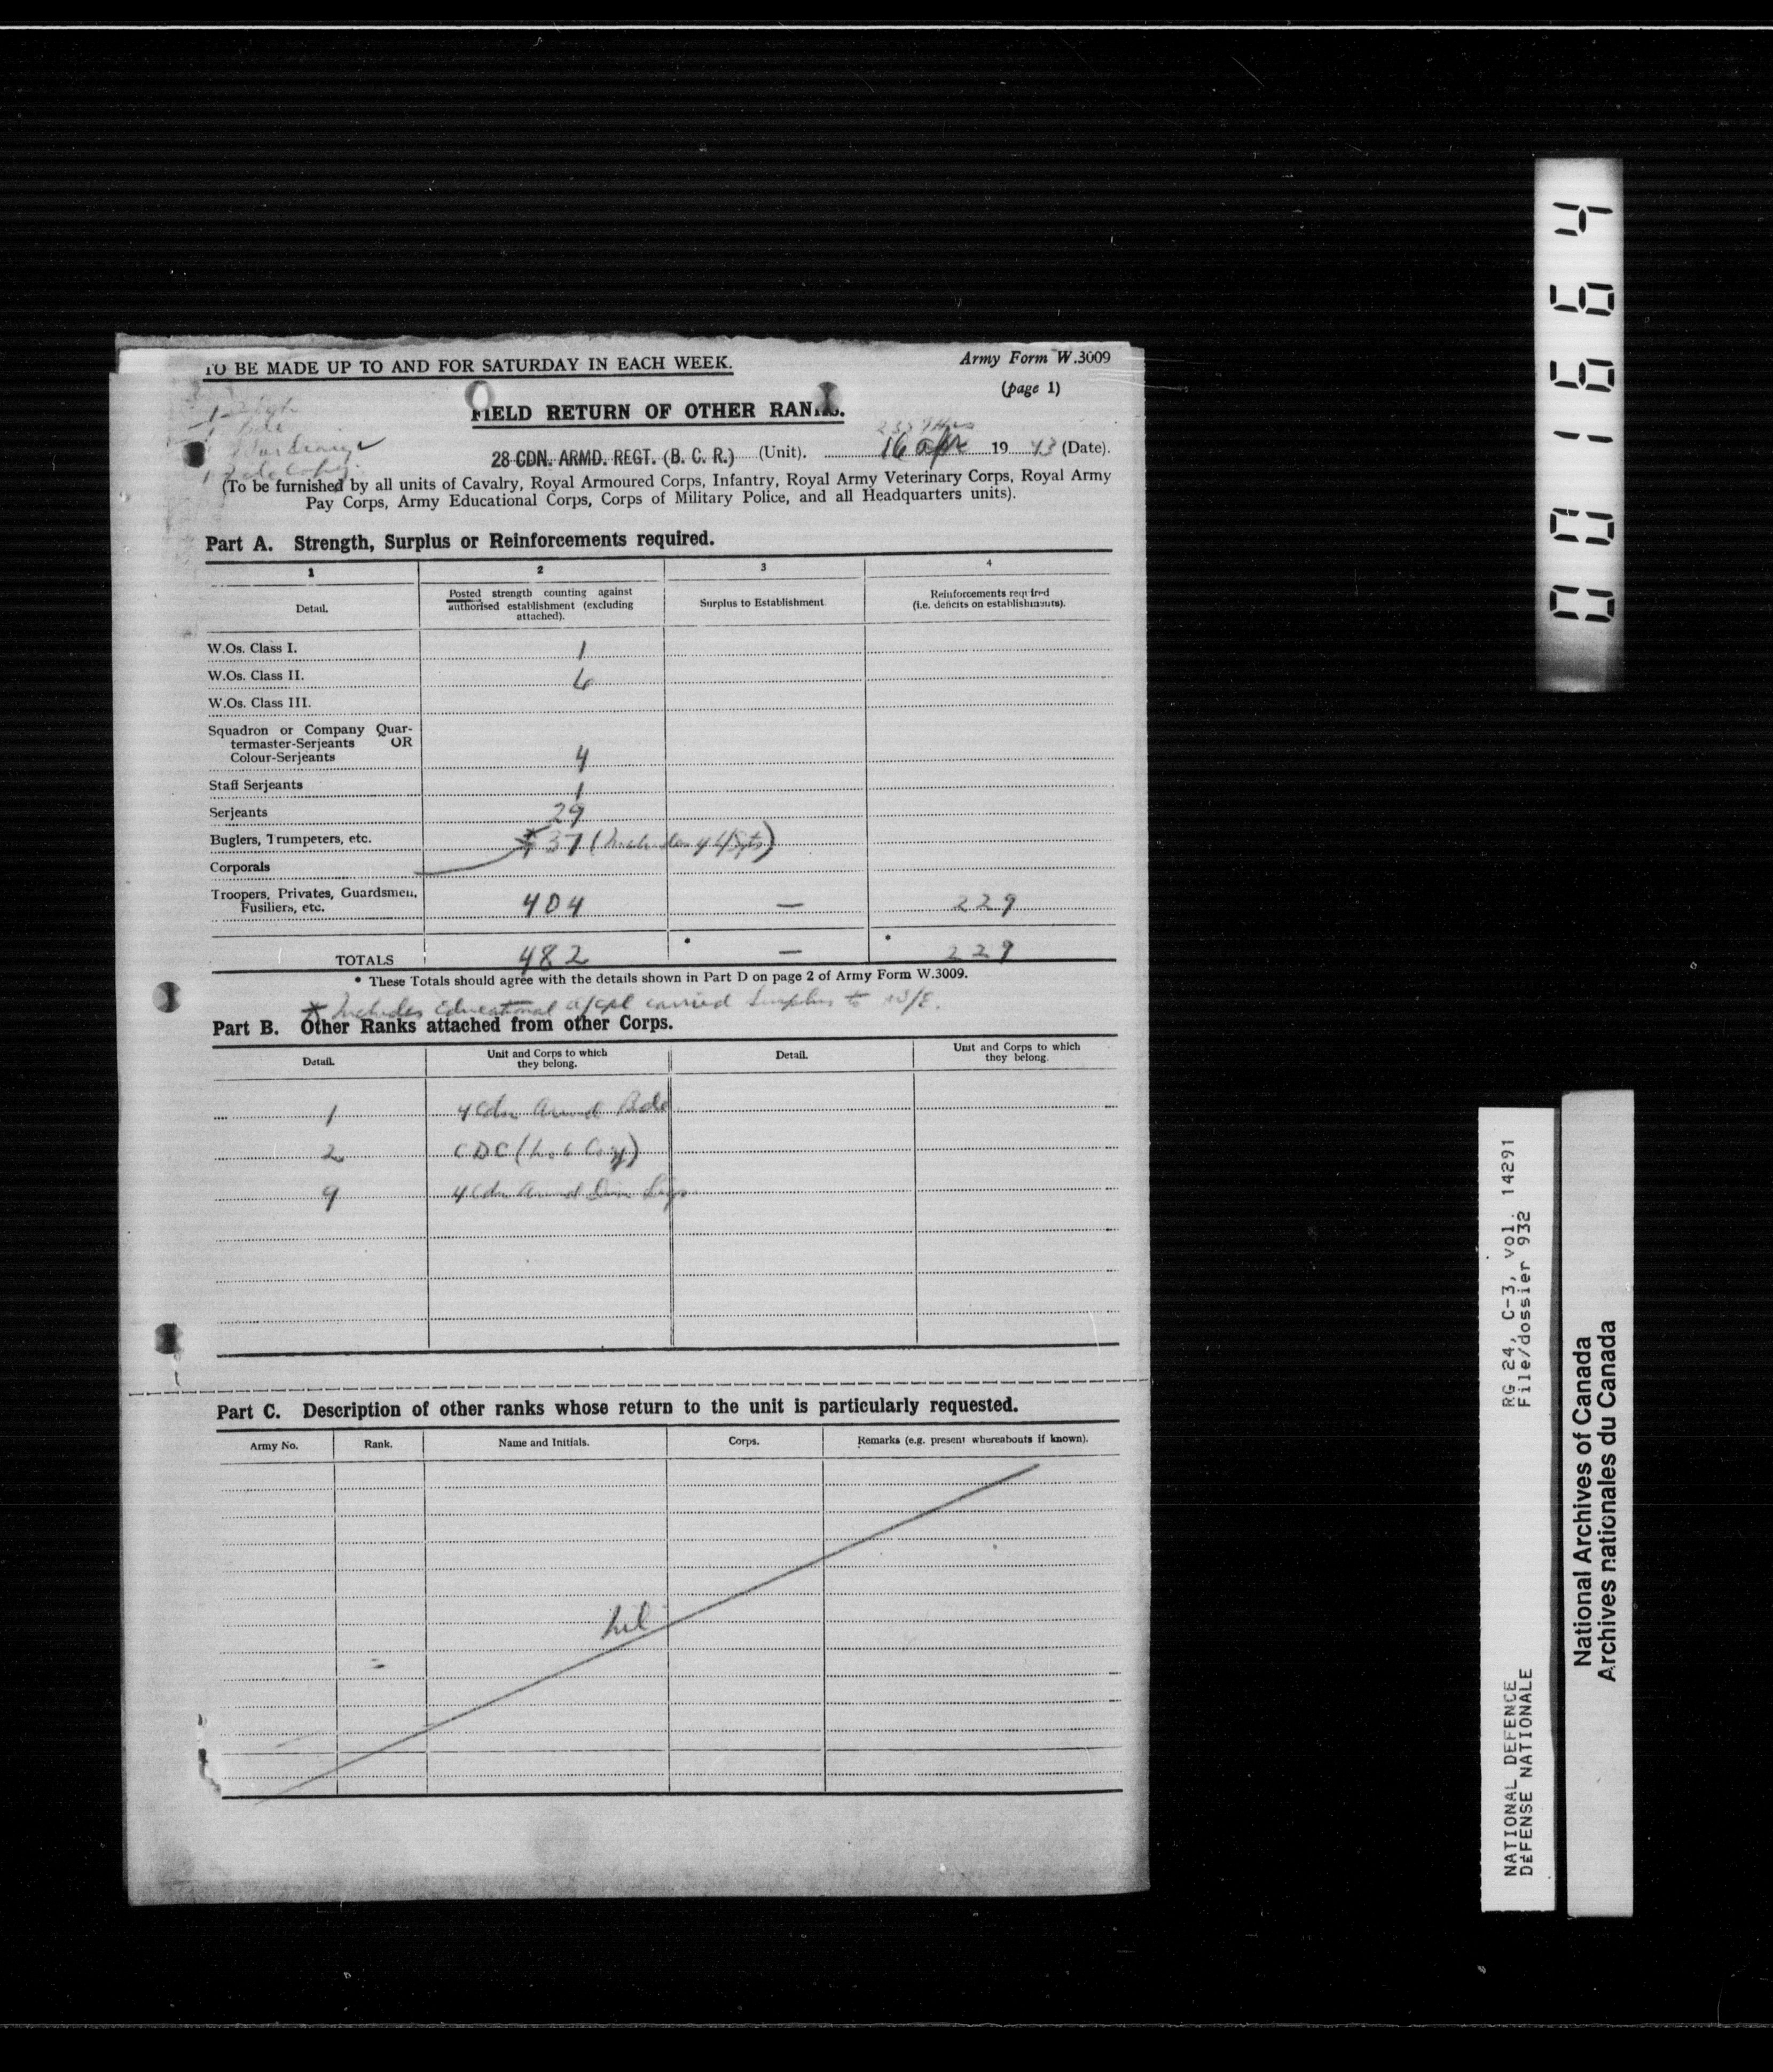 TO BE MADE UP TO AND FOR SATURDAY IN EACH WEEK.
Army Form W.3009
(page 1)
FIELD RETURN OF OTHER RANKS.
2359 Hrs
28 CDN. ARMD. REGT. (B. C. R.) (Unit). 16 apr 19 43 (Date).
(To be furnished by all units of Cavalry, Royal Armoured Corps, Infantry, Royal Army Veterinary Corps, Royal Army
Pay Corps, Army Educational Corps, Corps of Military Police, and all Headquarters units).
Part A. Strength, Surplus or Reinforcements required.
1 2 3 4
Detail.
Posted strength counting against
authorised establishment (excluding
attached).
Surplus to Establishment
Reinforcements required
(i.e. deficits on establishments).
W.Os. Class I. 1
W.Os. Class II. 6
W.Os. Class III.
Squadron or Company Quar-
termaster-Serjeants OR
Colour-Serjeants 4
Staff Serjeants 1
Serjeants 29
Buglers, Trumpeters, etc. * 37 (Includes 4 L/Sgts)
Corporals
Troopers, Privates, Guardsmen,
Fusiliers, etc. 404 — 229
TOTALS 482 * — * 229
* These Totals should agree with the details shown in Part D on page 2 of Army Form W.3009.
* Includes Educational a/cpl carried Surplus to W/E.
Part B. Other Ranks attached from other Corps.
Detail. Unit and Corps to which
they belong. Detail. Unit and Corps to which
they belong.
1 4 Cdn Armd Bde
2 CDC (No 6 Coy)
9 4 Cdn Armd Div Sigs
Part C. Description of other ranks whose return to the unit is particularly requested.
Army No. Rank. Name and Initials. Corps. Remarks (e.g. present whereabouts if known).
nil
001664
RG 24, C-3, vol. 14291
File/dossier 932
NATIONAL DEFENCE
DÉFENSE NATIONALE
National Archives of Canada
Archives nationales du Canada